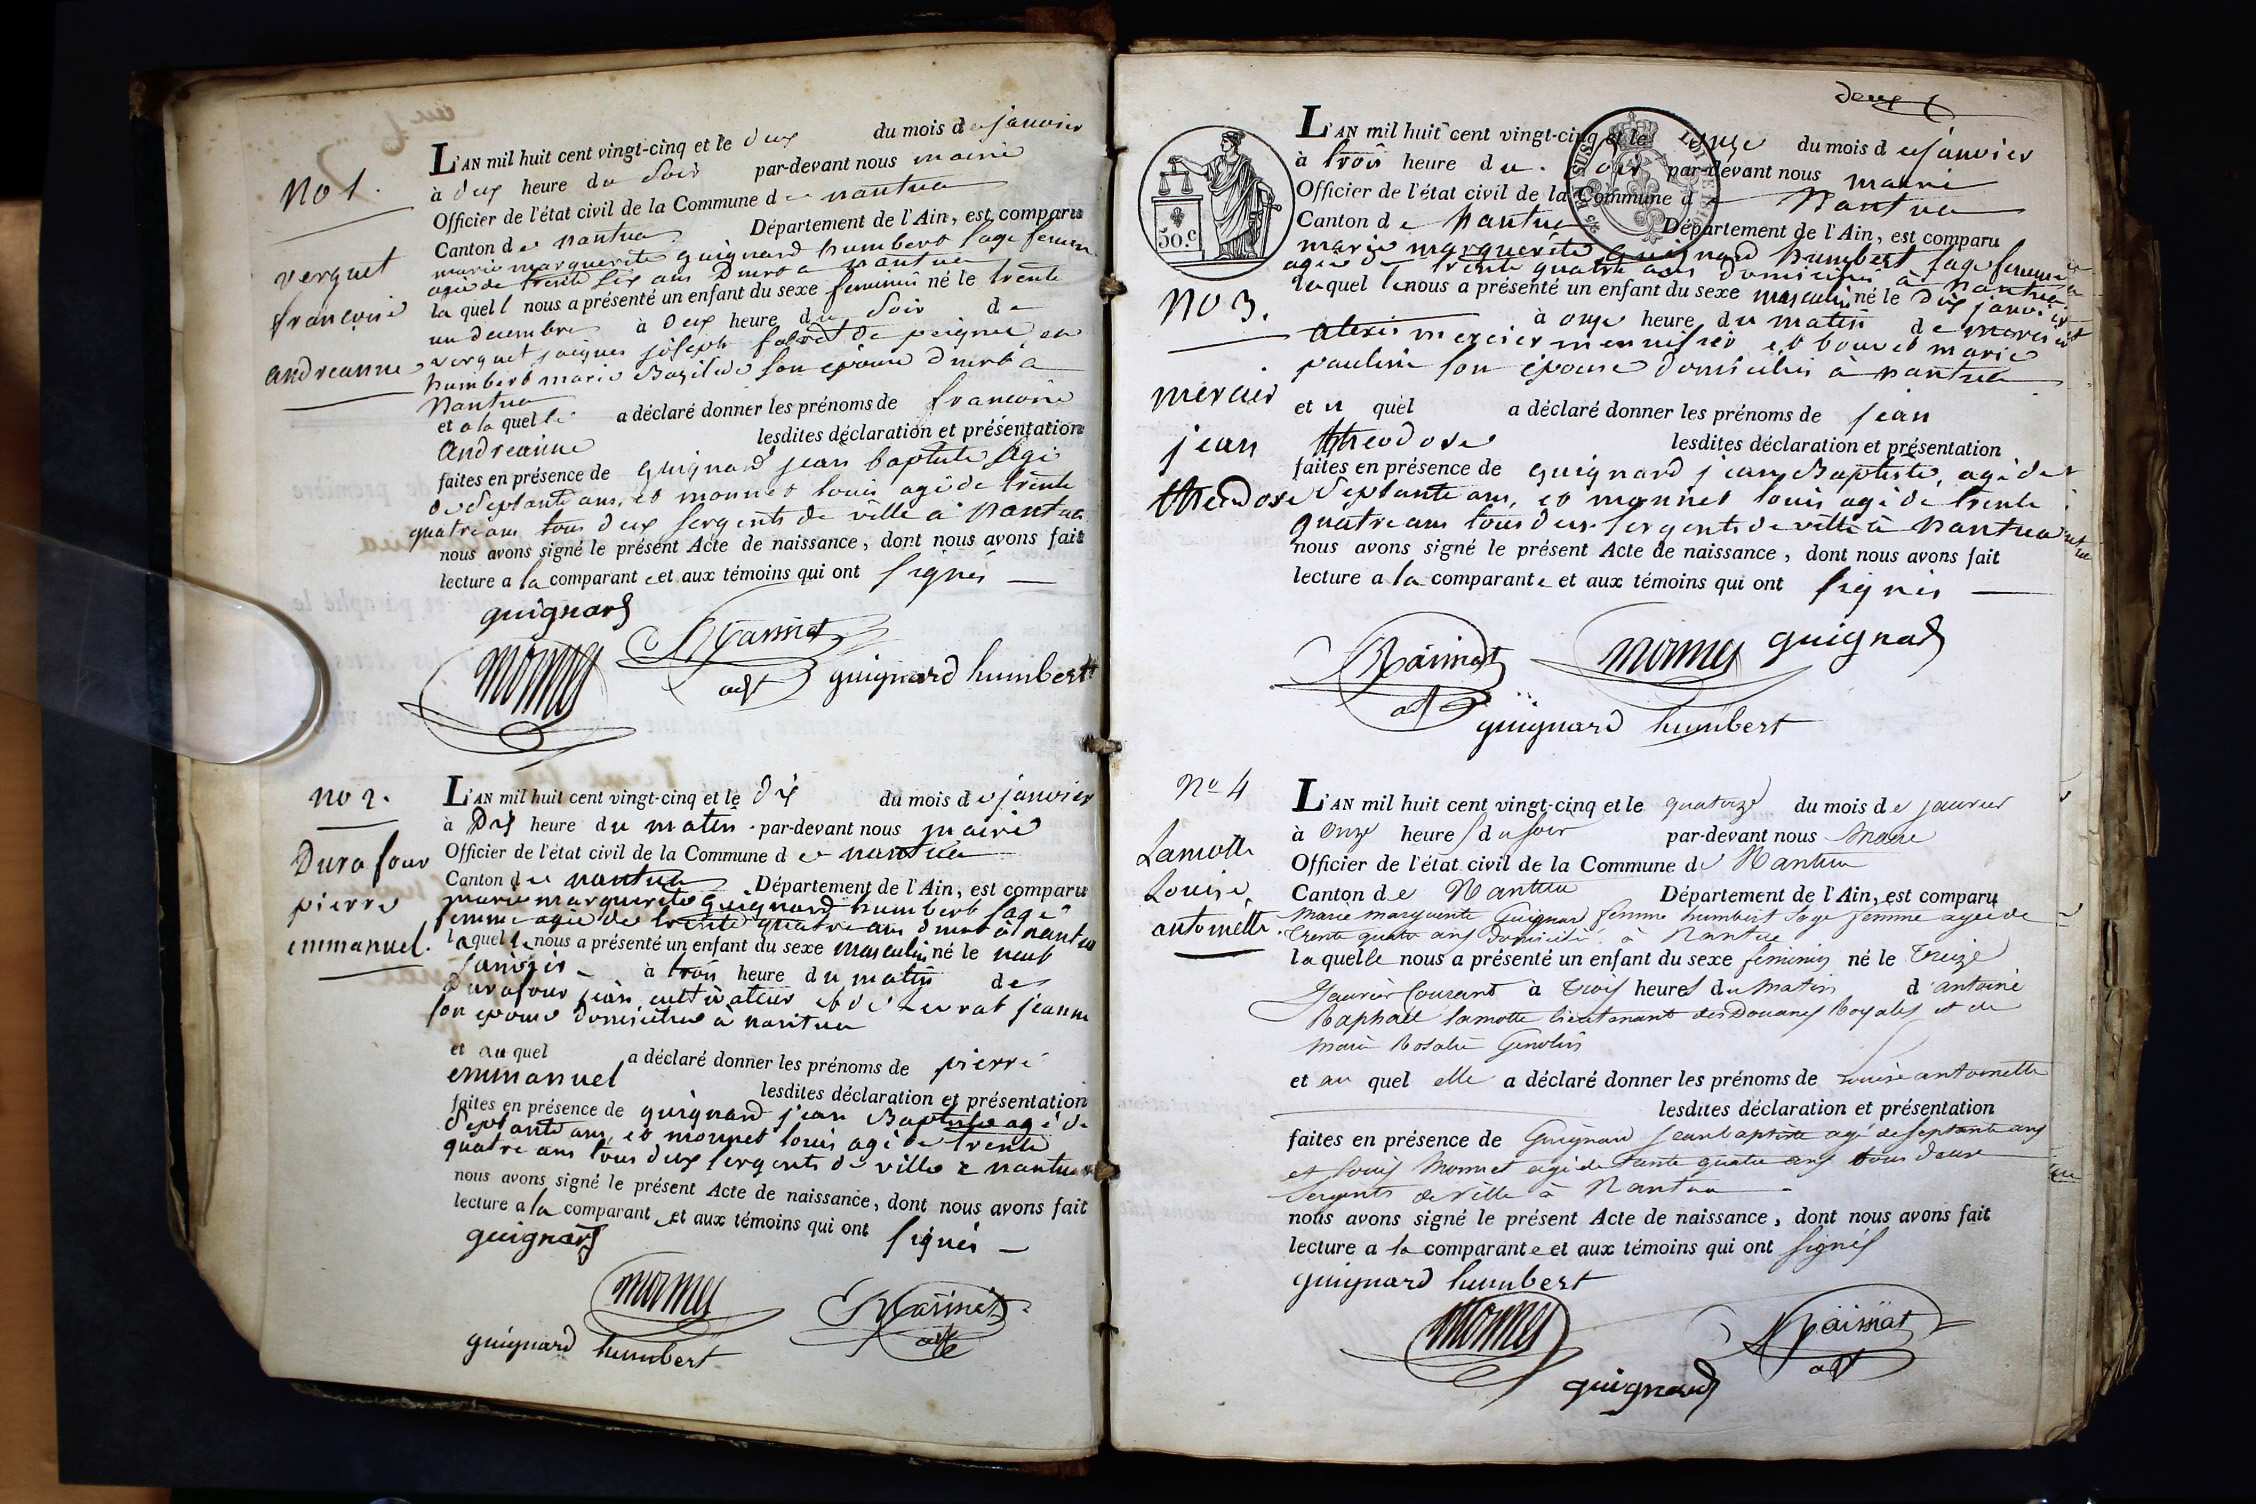 No 1.
verguet
françoise
andreanne
L'AN mil huit cent vingt-cinq et le deux du mois de janvier
à deux heure du soir par-devant nous maire
Officier de l'état civil de la Commune de nantua
Canton de nantua Département de l'Ain, est comparu
marie marguerite guignard humbert sage femme
agée de trente six ans dmrt a nantua
laquell nous a présenté un enfant du sexe feminin né le trente
un decembre à deux heure du soir de
verguet jacques joseph fabret de peignes et
humbert marie Bazilide son epouse dmrt a
Nantua
et a la quelle a déclaré donner les prénoms de francoise
andreanne lesdites déclaration et présentation
faites en présence de guignard jean baptiste agé
de septante ans, et monnet louis agé de trente
quatre ans tous deux sergents de ville à Nantua
nous avons signé le présent Acte de naissance, dont nous avons fait
lecture a la comparante et aux témoins qui ont signés
guignard
monnet
adjt
guignard humbert
no 2.
Durafour
pierre
emmanuel.
L'AN mil huit cent vingt-cinq et le dix du mois de janvier
à Dix heure du matin par-devant nous maire
Officier de l'état civil de la Commune de nantua
Canton de nantua Département de l'Ain, est comparu
marie marguerite guignard humbert sage
femme agée de trente quatre ans dmrt à nantua
laquelle nous a présenté un enfant du sexe masculin né le neuf
janvier à trois heure du matin de
Durafour jean cultivateur et de jeanne
son epouse domiciliés à nantua
et au quel a déclaré donner les prénoms de pierre
emmanuel lesdites déclaration et présentation
faites en présence de guignard jean Baptiste agé de
septante ans, et monnet louis agé de trente
quatre ans tous deux sergents de ville a nantua
nous avons signé le présent Acte de naissance, dont nous avons fait
lecture a la comparante et aux témoins qui ont signés
guignard
monnet
adjt
guignard humbert
deux
50.c
No 3.
mercier
jean
theodose
L'AN mil huit cent vingt-cinq et le onze du mois de janvier
à trois heure du soir par-devant nous maire
Officier de l'état civil de la Commune de Nantua
Canton de Nantua Département de l'Ain, est comparu
marie marguerite guignard humbert sage femme
agée de trente quatre ans domiciliée à Nantua
laquel le nous a présenté un enfant du sexe masculin né le dix janvier
à onze heure du matin de mercier
alexis mercier menuisier et bouvet marie
pauline son épouse domiciliés à nantua
et u quel a déclaré donner les prénoms de jean
theodose lesdites déclaration et présentation
faites en présence de guignard jean Baptiste, agé de
septante ans, et monnet louis agé de trente
quatre ans tous deux sergents de ville à nantua
nous avons signé le présent Acte de naissance, dont nous avons fait
lecture a la comparante et aux témoins qui ont signés
monnet guignard
guignard humbert
No 4
Lamotte
Louise
antoinette.
L'AN mil huit cent vingt-cinq et le quatorze du mois de janvier
à Onze heure du soir par-devant nous Maire
Officier de l'état civil de la Commune de Nantua
Canton de Nantua Département de l'Ain, est comparu
Marie marguerite Guignard femme humbert Sage femme agée de
trente quatre ans domiciliée à Nantua
laquelle nous a présenté un enfant du sexe feminin né le treize
Janvier Courant à trois heures du Matin d'antoine
Raphaël lamotte lieutenant des Douanes Royales et de
Marie Rosalie Genolin
et au quel elle a déclaré donner les prénoms de Louise antoinette
lesdites déclaration et présentation
faites en présence de Guignard Jean baptiste agé de septante ans
et Louis Monnet agé de trente quatre ans tous deux
Sergents de Ville à Nantua
nous avons signé le présent Acte de naissance, dont nous avons fait
lecture a la comparante et aux témoins qui ont signés
guignard humbert
monnet
adjt
guignard